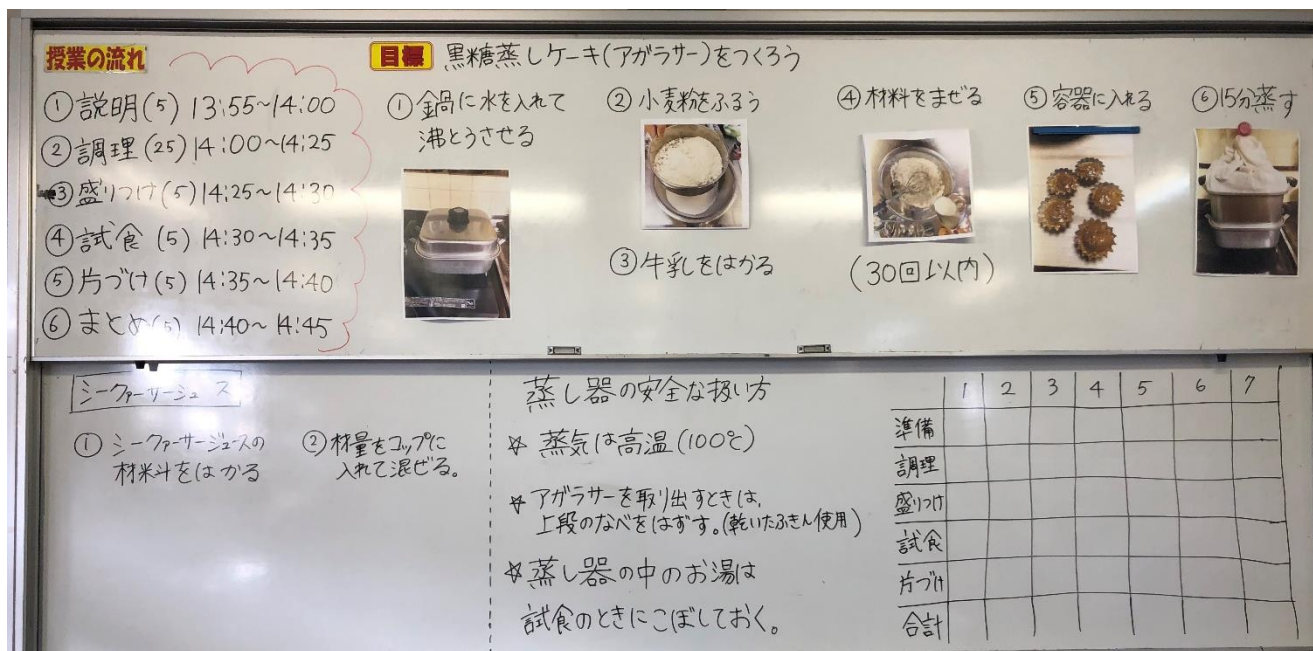 授業の流れ
① 説明(5) 13:55~14:00
② 調理(25) 14:00~14:25
③ 盛りつけ(5) 14:25~14:30
④ 試食(5) 14:30~14:35
⑤ 片づけ(5) 14:35~14:40
⑥ まとめ(5) 14:40~14:45
目標 黒糖蒸しケーキ(アガラサー)をつくろう
① 鍋に水を入れて
沸とうさせる
② 小麦粉をふるう
③ 牛乳をはかる
④ 材料をまぜる
(30回以内)
⑤ 容器に入れる
⑥ 15分蒸す
シークァーサージュース
① シークァーサージュースの
材料をはかる
② 材量をコップに
入れて混ぜる。
蒸し器の安全な扱い方
☆ 蒸気は高温(100℃)
☆ アガラサーを取り出すときは、
上段のなべをはずす。(乾いたふきん使用)
☆ 蒸し器の中のお湯は
試食のときにこぼしておく。
1 2 3 4 5 6 7
準備
調理
盛りつけ
試食
片づけ
合計